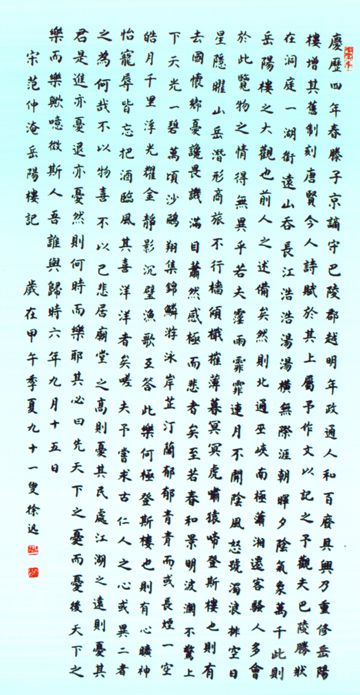 慶歷四年春滕子京謫守巴陵郡越明年政通人和百廢具興乃重修岳陽
樓增其舊制刻唐賢今人詩賦於其上屬予作文以記之予觀夫巴陵勝狀
在洞庭一湖銜遠山吞長江浩浩湯湯橫無際涯朝暉夕陰氣象萬千此則
岳陽樓之大觀也前人之述備矣然則北通巫峽南極瀟湘遷客騷人多會
於此覽物之情得無異乎若夫霪雨霏霏連月不開陰風怒號濁浪排空日
星隱曜山岳潛形商旅不行檣傾檝摧薄暮冥冥虎嘯猿啼登斯樓也則有
去國懷鄉憂讒畏譏滿目蕭然感極而悲者矣至若春和景明波瀾不驚上
下天光一碧萬頃沙鷗翔集錦鱗游泳岸芷汀蘭郁郁青青而或長煙一空
皓月千里浮光耀金靜影沉璧漁歌互答此樂何極登斯樓也則有心曠神
怡寵辱皆忘把酒臨風其喜洋洋者矣嗟夫予嘗求古仁人之心或異二者
之為何哉不以物喜不以己悲居廟堂之高則憂其民處江湖之遠則憂其
君是進亦憂退亦憂然則何時而樂耶其必曰先天下之憂而憂後天下之
樂而樂歟噫微斯人吾誰與歸時六年九月十五日
宋范仲淹岳陽樓記 歲在甲午季夏九十一叟徐